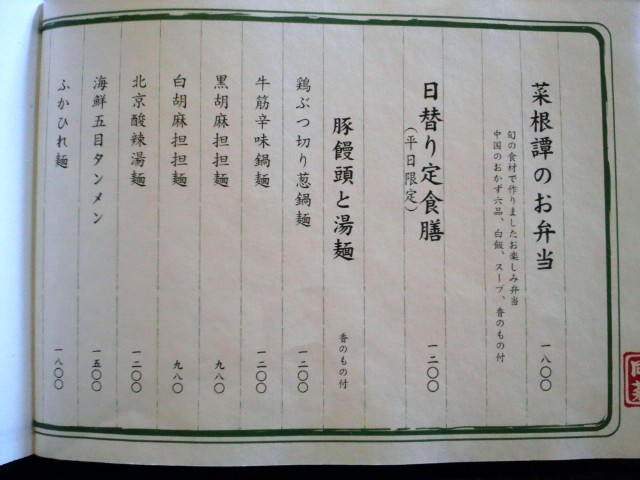 菜根譚のお弁当 一八〇〇
旬の食材で作りましたお楽しみ弁当
中国のおかず六品、白飯、スープ、香のもの付
日替り定食膳 一二〇〇
(平日限定)
豚饅頭と湯麺 香のもの付
鶏ぶつ切り葱鍋麺 一二〇〇
牛筋辛味鍋麺 一二〇〇
黒胡麻担担麺 九八〇
白胡麻担担麺 九八〇
北京酸辣湯麺 一二〇〇
海鮮五目タンメン 一五〇〇
ふかひれ麺 一八〇〇